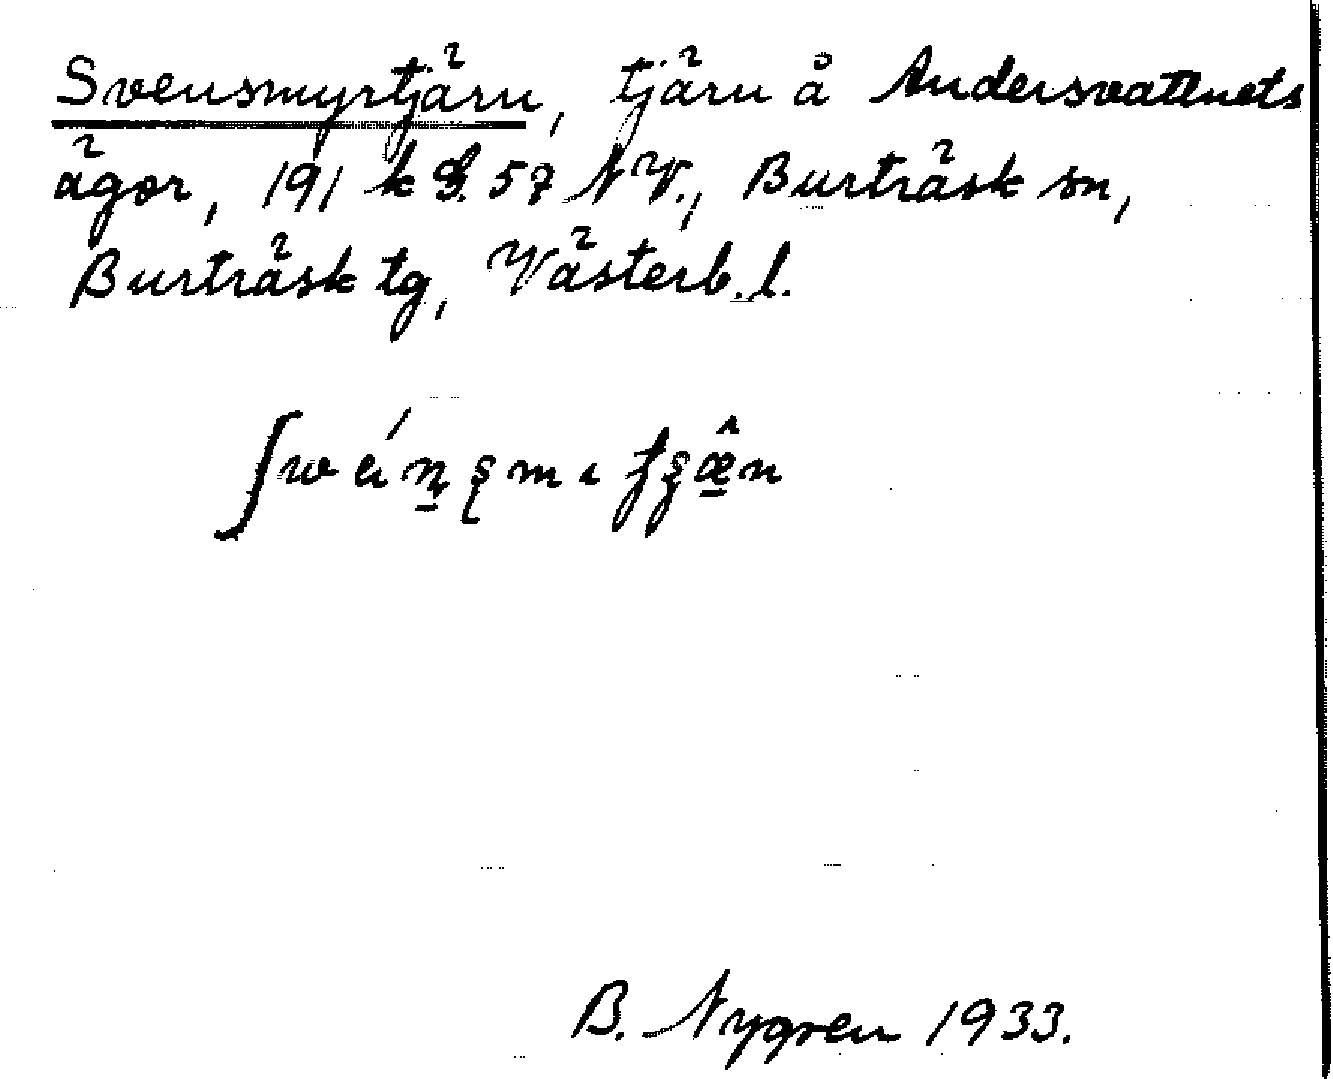 Svensmyrtjärn, tjärn å Andersvattnets
ägor, 191 k S. 57 NV., Burträsk sn,
Burträsk tg, Västerb. l.
B. Nygren 1933.